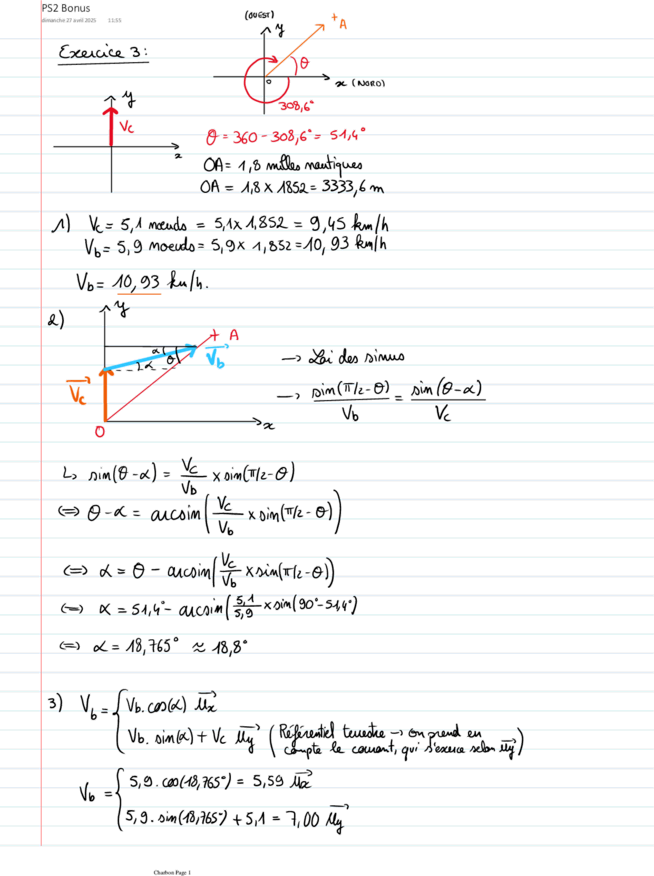 PS2 Bonus
dimanche 27 avril 2025 11:55
(OUEST)
y
+A
Exercice 3:
θ
o
x (NORD)
308,6°
y
Vc
x
θ = 360 - 308,6° = 51,4°
OA = 1,8 milles nautiques
OA = 1,8 x 1852 = 3333,6 m
1) Vc = 5,1 noeuds = 5,1 x 1,852 = 9,45 km/h
Vb = 5,9 noeuds = 5,9 x 1,852 = 10,93 km/h
Vb = 10,93 km/h.
2)
y
+ A
α
θ
α
Vb
Vc
O
x
→ Loi des sinus
→ sin(π/2 - θ)/Vb = sin(θ-α)/Vc
↳ sin(θ-α) = Vc/Vb x sin(π/2 - θ)
⇔ θ - α = arcsin(Vc/Vb x sin(π/2 - θ))
⇔ α = θ - arcsin(Vc/Vb x sin(π/2 - θ))
⇔ α = 51,4° - arcsin(5,1/5,9 x sin(90° - 51,4°)
⇔ α = 18,765° ≈ 18,8°
3) Vb = { Vb. cos(α) ux
Vb. sin(α) + Vc uy (Référentiel terrestre → on prend en
compte le courant, qui s'exerce selon uy)
Vb = { 5,9. cos(18,765°) = 5,59 ux
5,9. sin(18,765°) + 5,1 = 7,00 uy
Charbon Page 1